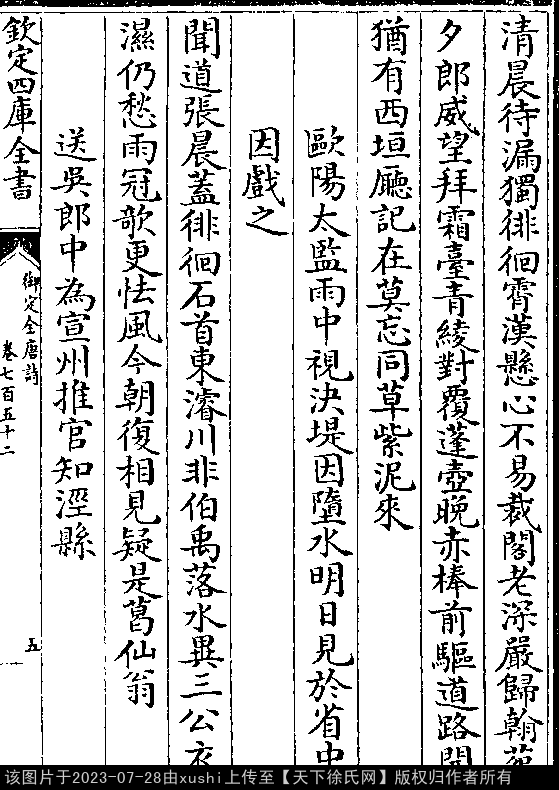 清晨待漏獨徘徊霄漢懸心不易裁閣老深嚴歸翰苑
夕郎威望拜霜臺青綾對覆蓬壺晚赤棒前驅道路開
猶有西垣廳記在莫忘同草紫泥來
歐陽太監雨中視決堤因墮水明日見於省中
因戲之
聞道張晨蓋徘徊石首東濬川非伯禹落水異三公衣
濕仍愁雨冠欹更怯風今朝復相見疑是葛仙翁
送吳郎中為宣州推官知涇縣
欽定四庫全書
御定全唐詩
卷七百五十二
五
该图片于2023-07-28由xushi上传至【天下徐氏网】版权归作者所有